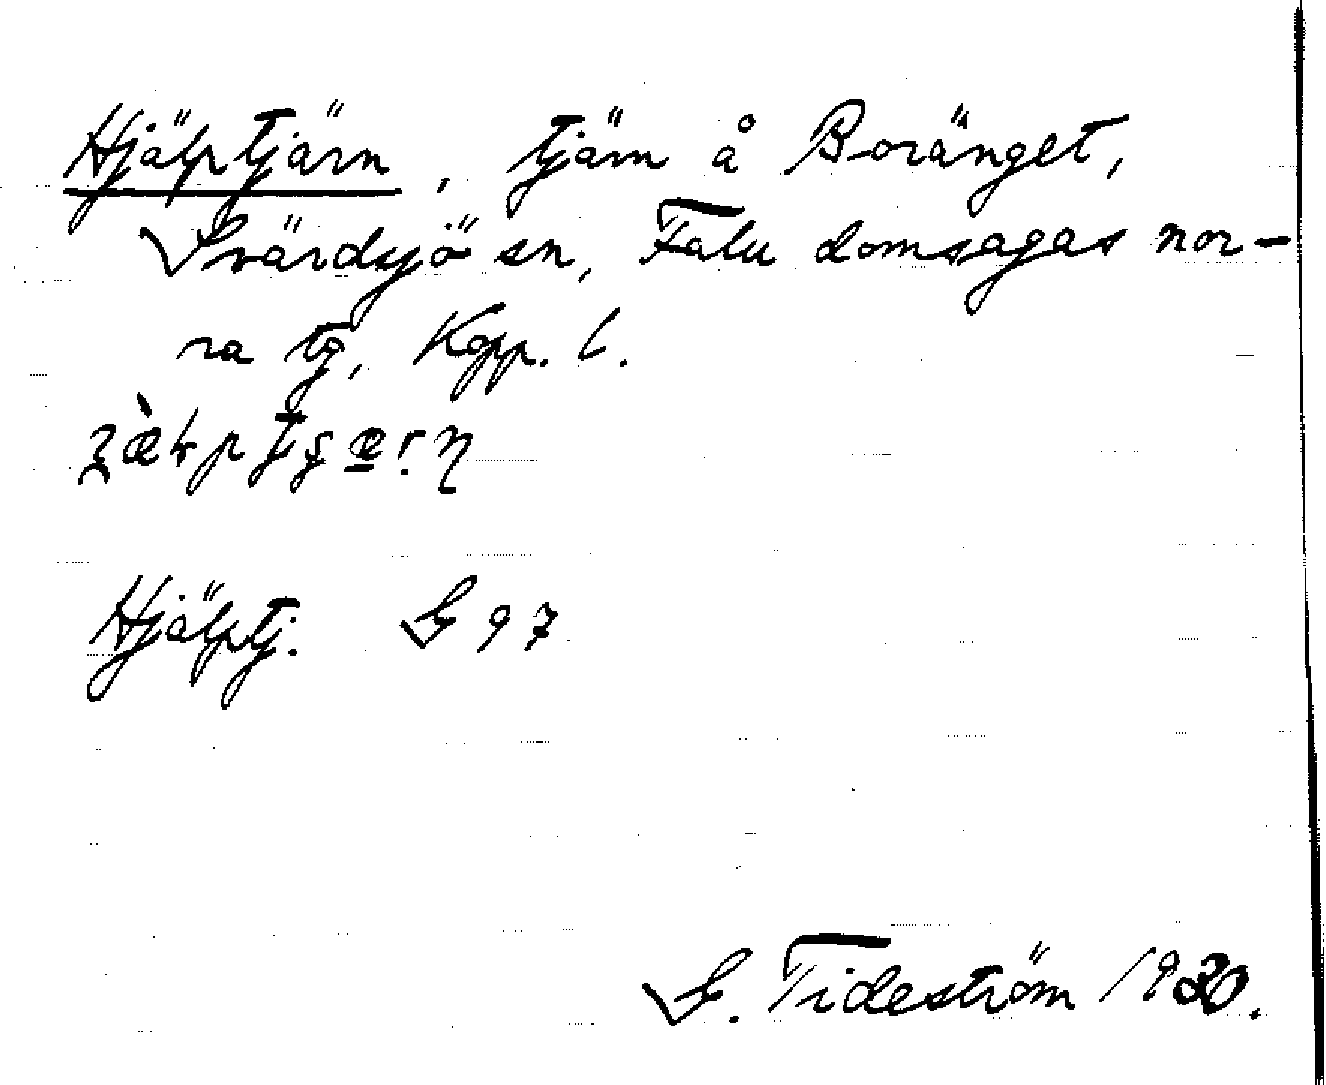 Hjälptjärn, tjärn å Boränget,
Svärdsjö sn, Falu domsagas nor-
ra tg, Kopp. l.
Hjälptj. G 97
G. Tideström 1930.